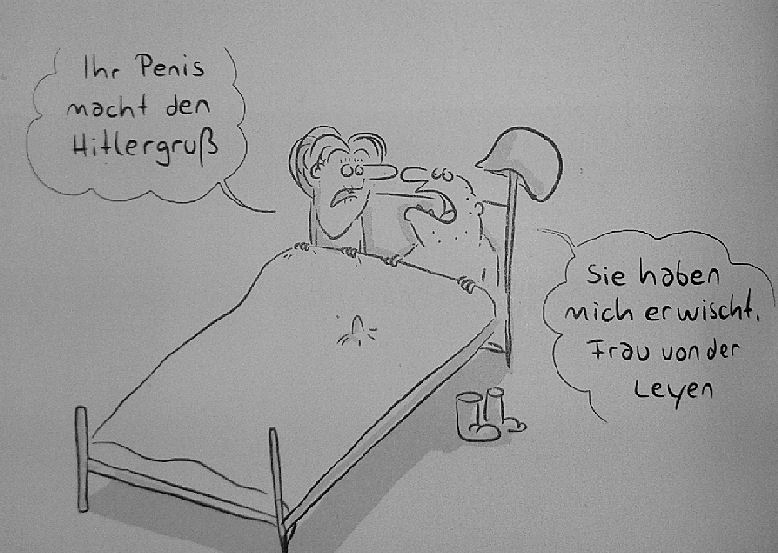 Ihr Penis
macht den
Hitlergruß
Sie haben
mich erwischt,
Frau von der
Leyen